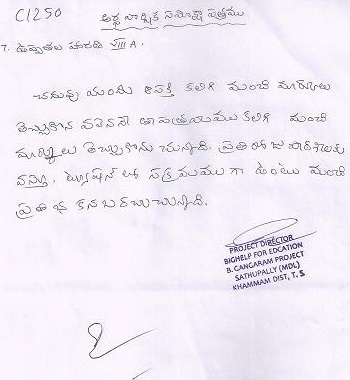 C1250
అర్ధ వార్షిక సమీక్షా పత్రము
7. ఉప్పాతల హారతి VIII A.
చదువు యందు ఆసక్తి కలిగి మంచి మార్కులు
తెచ్చుకొన వలెననే తాపత్రయము కలిగి మంచి
మార్కులు తెచ్చుకొను చున్నది. ప్రతి రోజు పాఠశాలకు
వస్తూ, ట్యూషన్ లో సక్రమము గా ఉంటు మంచి
ప్రతిభ కనబర్చుచున్నది.
PROJECT DIRECTOR
BIGHELP FOR EDCATION
B. CANGARAM PROJECT
SATHUPALLY (MDL)
KHAMMAM DIST, T. S.